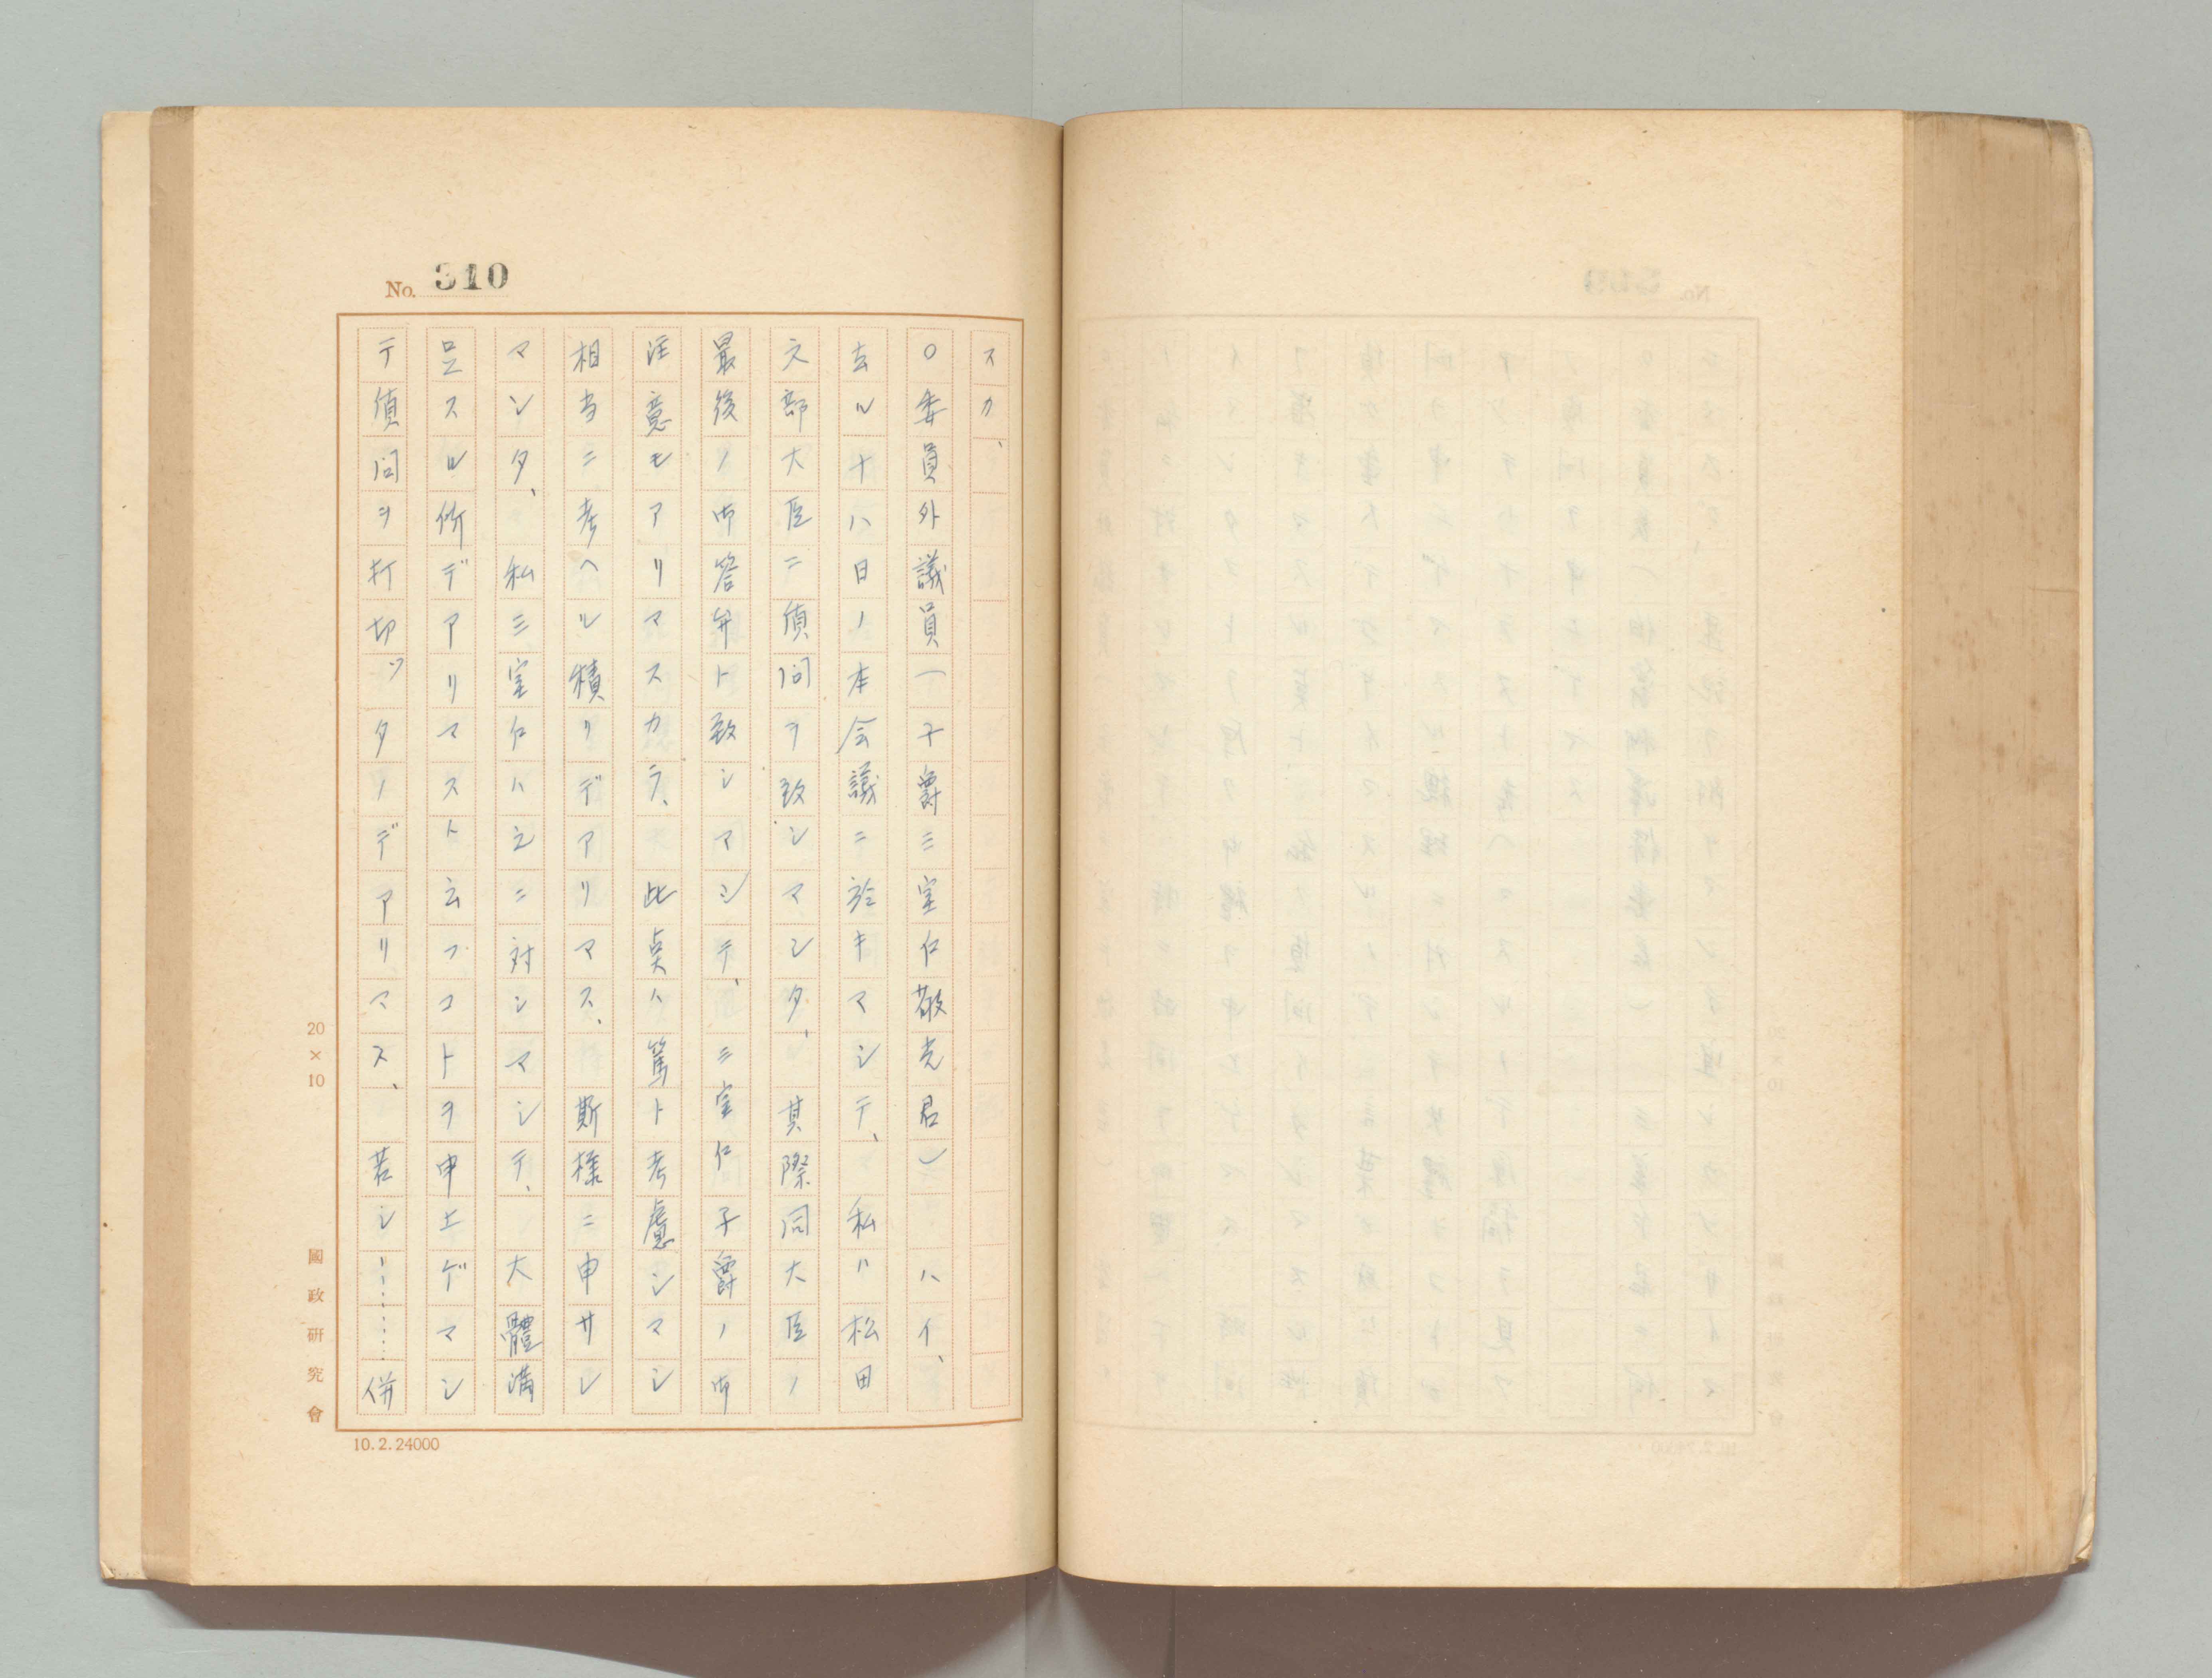 No. 310
スカ、
○委員外議員(子爵三室戸敬光君) ハイ、
去ル十八日ノ本会議ニ於キマシテ、私ハ松田
文部大臣ニ質問ヲ致シマシタ、其際同大臣ノ
最後ノ御答弁ト致シマシテ、三室戸子爵ノ御
注意モアリマスカラ、此点ハ篤ト考慮シマシ
相当ニ考ヘル積リデアリマス、斯様ニ申サレ
マシタ、私三室戸ハ之ニ対シマシテ、大體満
足スル所デアリマスト云フコトヲ申上ゲマシ
テ質問ヲ打切ツタノデアリマス、若シ……併
20×10
國政研究會
10.2.24000